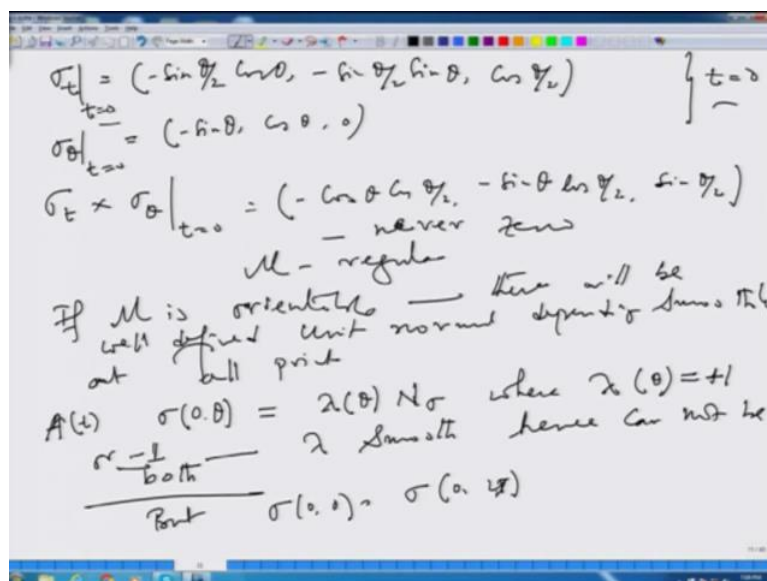 σ_t|_{t=0} = (-Sin θ/2 Cosθ, - Sin θ/2 Sinθ, Cos θ/2) } t=0
σ_θ|_{t=0} = (-Sinθ, Cos θ, 0)
σ_t × σ_θ|_{t=0} = (- Cos θ Cos θ/2, - Sinθ Cos θ/2, Sin θ/2)
— never zero
M - regular
If M is orientable — there will be
well defined unit normal depending Smooth
at all point
σ(0.θ) = λ(θ) Nσ where λ(θ) = +1
or -1 — λ Smooth hence can not be
both
But σ(0,0) = σ(0, 2π)